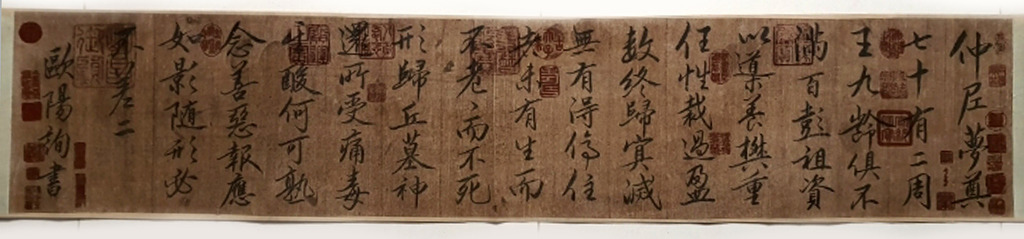 仲尼夢奠
七十有二周
王九齡俱不
滿百彭祖資
以導養樊重
任性裁過盈
數終歸冥滅
無有得停住
者未有生而
不老而不死
形歸丘墓神
還所受痛毒
辛酸何可熟
念善惡報應
如影隨形必
不差二
歐陽詢書